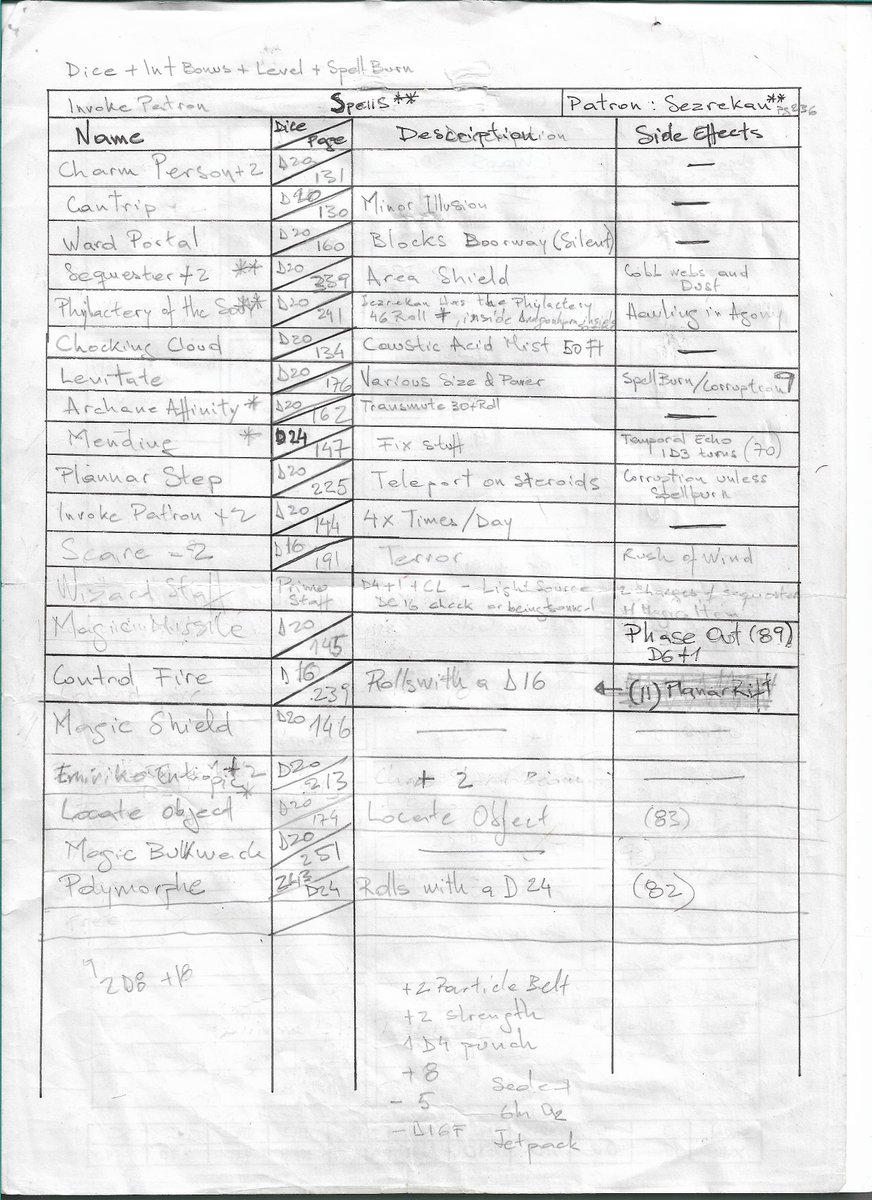 Dice + Int Bonus + Level + Spell Burn
Invoke Patron Spells** Patron : Sezrekan** PG 236
Name Dice Page Description Side Effects
Charm Person +2 D20 131 —
Cantrip D20 130 Minor Illusion —
Ward Portal D20 160 Blocks Doorway (Silent) —
Sequester +2 ** D20 239 Area Shield Cobb webs and
Dust
Phylactery of the Soul** D20 241 Sezrekan Has the Phylactery
46 Roll , inside Howling in Agony
Chocking Cloud D20 134 Caustic Acid Mist 50 Ft —
Levitate D20 176 Various Size & Power SpellBurn/Corruption
Archane Affinity * D20 162 Transmute 30+Roll —
Mending * D24 147 Fix stuff Temporal Echo
1D3 turns (70)
Plannar Step D20 225 Teleport on steroids Corruption unless
Spellburn
Invoke Patron +2 D20 144 4x Times/Day —
Scare -2 D16 191 Terror Rush of Wind
Wizard Staff Prime
Staff D4+1+CL - Light Source 2 charges of Sequester
DC 16 check or being +1 Magic Item
Magic Missile D20 145 Phase Out (89)
D6+1
Control Fire D16 239 Rolls with a D16 ← (11) Planar Rift
Magic Shield D20 146 — —
Emirikol Entropic +2 * D20 213 + 2 —
Locate Object D20 174 Locate Object (83)
Magic Bulkwark D20 251 —
Polymorphe 243 D24 Rolls with a D24 (82)
Free
2D8 +18
+2 Particle Belt
+2 strength
1D4 punch
+8
- 5 6h O2
- D16F Jetpack